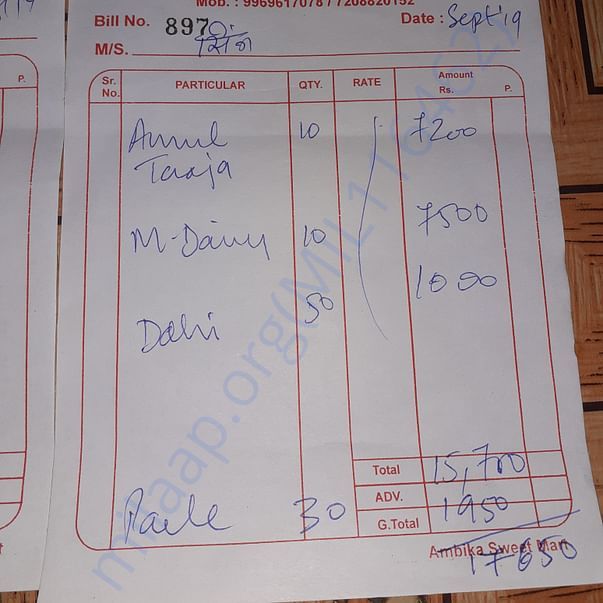 Mob.: 9969617078 / 7208820152
Bill No. 8970 Date : Sept'19
M/S.
Sr. No. PARTICULAR QTY. RATE Amount Rs. P.
Amul 10 7200
Taaja
M-Dairy 10 7500
Dahi 50 1000
Total 15,700
ADV. 1950
Parle 30 G.Total
Ambika Sweet Mart
17650
milaap.org(MIL116452)
P.